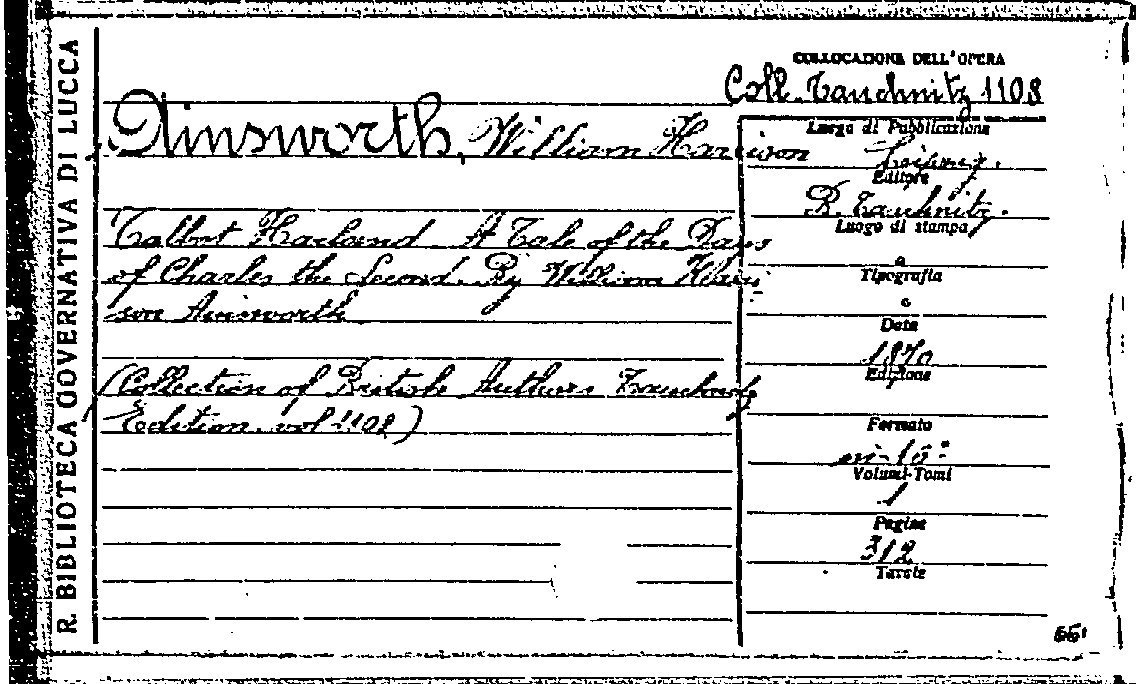 R. BIBLIOTECA GOVERNATIVA DI LUCCA
COLLOCAZIONE DELL'OPERA
Coll. Tauchnitz 1108
Ainsworth, William Harrison
Talbot Harland. A Tale of the Days
of Charles the Second. By William Harri
son Ainsworth
(Collection of British Authors Tauchnitz
Edition. vol 1108)
Luogo di Pubblicazione
Leipzig.
Editore
B. Tauchnitz.
Luogo di stampa
Tipografia
Data
1870
Edizione
Formato
in-16°
Volumi-Tomi
1
Pagine
312
Tavole